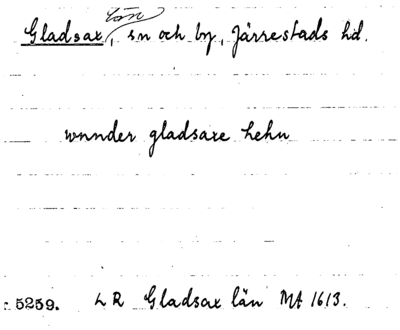 län
Gladsax, sn och by, Järrestads hd.
wnnder gladsaxe hehn
: 5259. LR Gladsax län MA 1613.